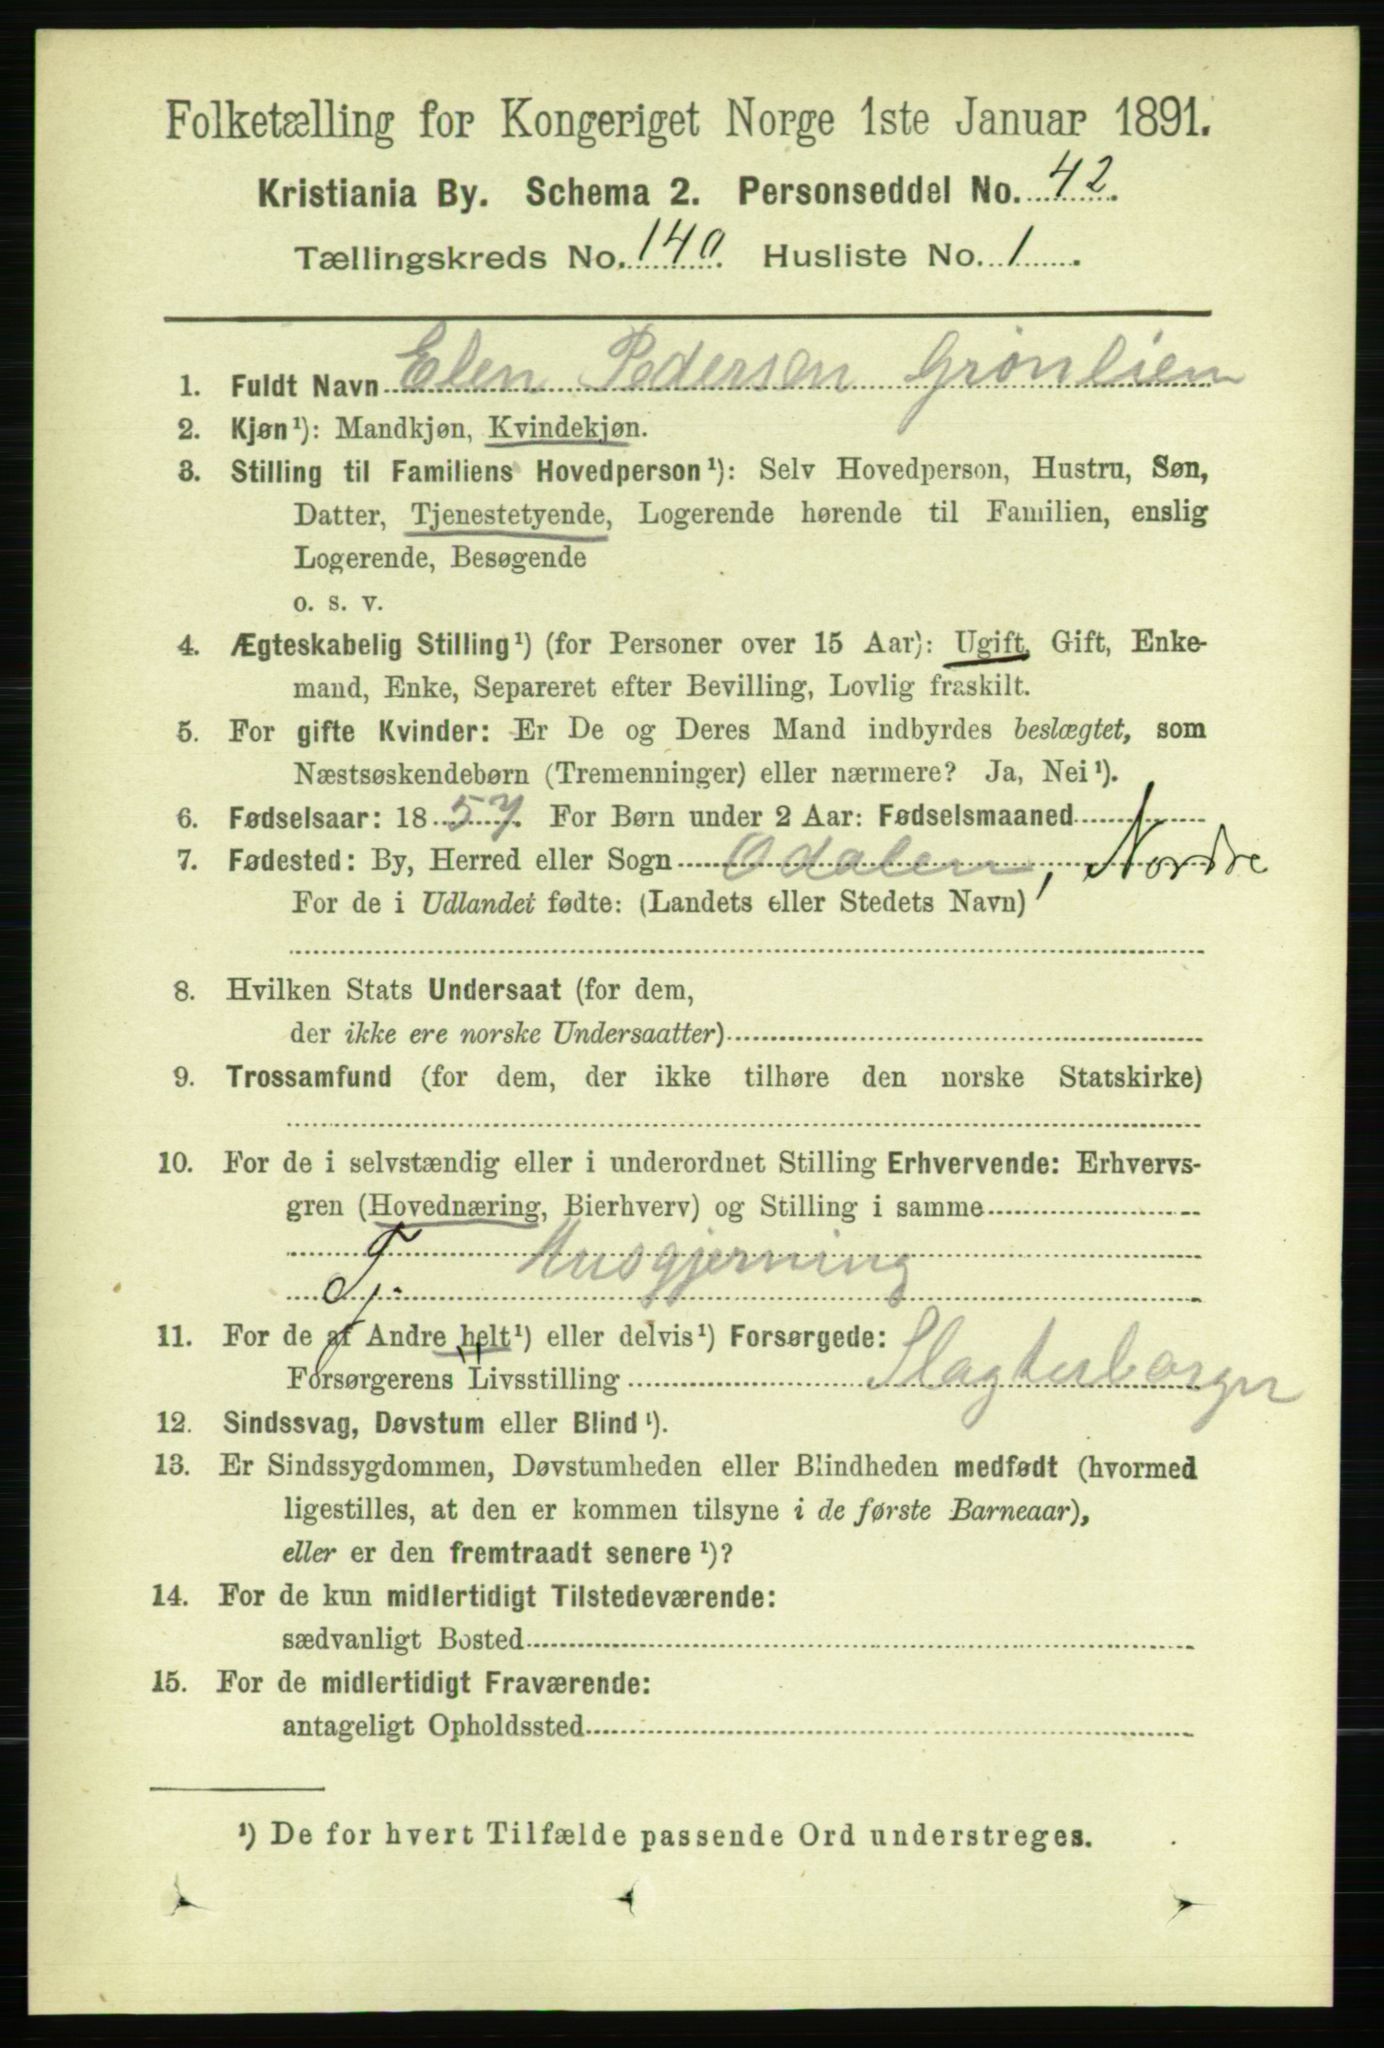 Folketælling for Kongeriget Norge 1ste Januar 1891.
Kristiania By. Schema 2. Personseddel No. 42.
Tællingskreds No. 140. Husliste No. 1.
1. Fuldt Navn Elen Pedersen Grønlien
2. Kjøn¹): Mandkjøn, Kvindekjøn.
3. Stilling til Familiens Hovedperson¹): Selv Hovedperson, Hustru, Søn,
Datter, Tjenestetyende, Logerende hørende til Familien, enslig
Logerende, Besøgende
o. s. v.
4. Ægteskabelig Stilling¹) (for Personer over 15 Aar): Ugift, Gift, Enke-
mand, Enke, Separeret efter Bevilling, Lovlig fraskilt.
5. For gifte Kvinder: Er De og Deres Mand indbyrdes beslægtet, som
Næstsøskendebørn (Tremenninger) eller nærmere? Ja, Nei¹).
6. Fødselsaar: 1857. For Børn under 2 Aar: Fødselsmaaned
7. Fødested: By, Herred eller Sogn Odalen, Nordre
For de i Udlandet fødte: (Landets eller Stedets Navn)
8. Hvilken Stats Undersaat (for dem,
der ikke ere norske Undersaatter)
9. Trossamfund (for dem, der ikke tilhøre den norske Statskirke)
10. For de i selvstændig eller i underordnet Stilling Erhvervende: Erhvervs-
gren (Hovednæring, Bierhverv) og Stilling i samme
Husgjerning
11. For de af Andre helt¹) eller delvis¹) Forsørgede:
Forsørgerens Livsstilling Slagterborger
12. Sindssvag, Døvstum eller Blind¹).
13. Er Sindssygdommen, Døvstumheden eller Blindheden medfødt (hvormed
ligestilles, at den er kommen tilsyne i de første Barneaar),
eller er den fremtraadt senere¹)?
14. For de kun midlertidigt Tilstedeværende:
sædvanligt Bosted
15. For de midlertidigt Fraværende:
antageligt Opholdssted
¹) De for hvert Tilfælde passende Ord understreges.